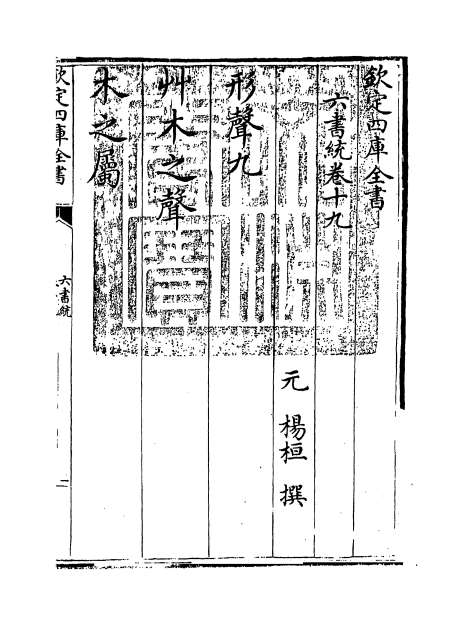 欽定四庫全書
六書統卷十九
元 楊桓 撰
形聲九
艸木之聲
木之屬
欽定四庫全書
六書統
二